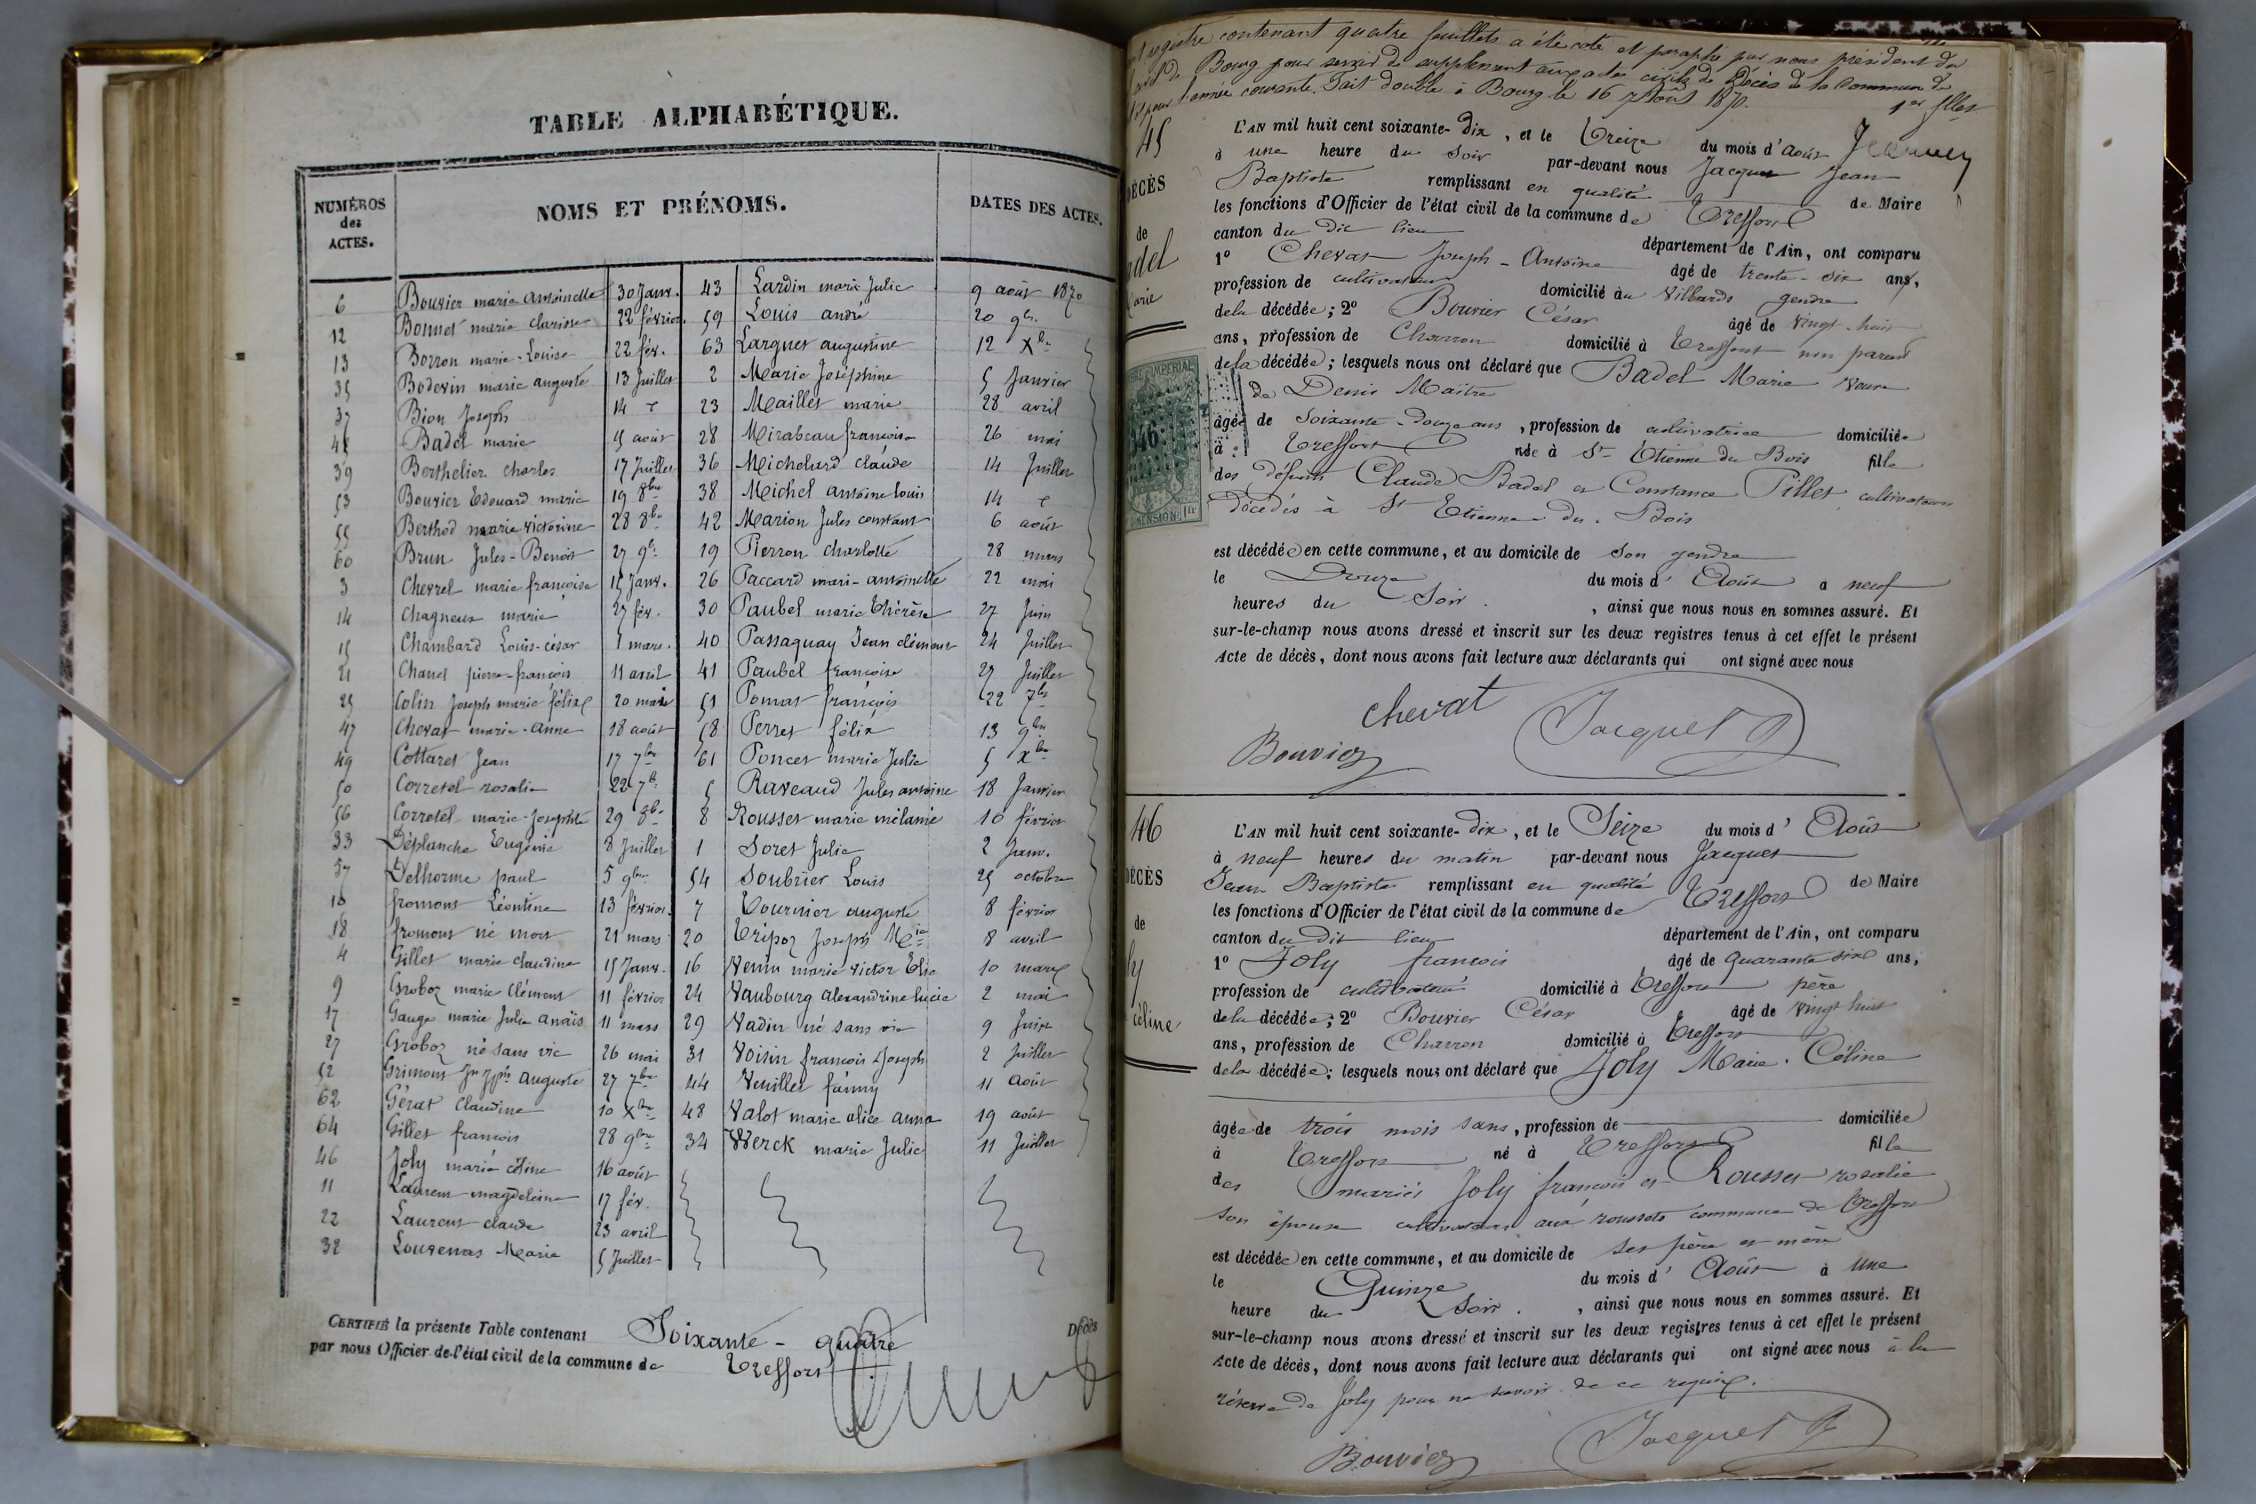 TABLE ALPHABÉTIQUE.
NUMÉROS des ACTES. NOMS ET PRÉNOMS. DATES DES ACTES.
6 Bouvier marie antoinette 30 Janv. 43 Lardin marie Julie 9 août 1870
12 Bonnet marie clarisse 22 février 59 Louis andré 20 9bre
13 Borron marie-Louise 22 fév. 63 Largues augustine 12 Xbre
35 Bodevin marie auguste 13 Juillet 2 Marie Joséphine 5 Janvier
37 Bion Joseph 14 23 Maillet marie 28 avril
45 Badel marie août 28 Mirabeau françoise 26 mai
39 Berthelier charles 17 Juillet 36 Michelard claude 14 Juillet
53 Bouvier Edouard marie 19 8bre 38 Michel antoine louis 14
55 Berthod marie victorine 28 8bre 42 Marion Jules constant 6 août
60 Brun Jules-Benoit 27 9bre 19 Pierron charlotte 28 mars
3 Chevrel marie françoise 15 Janv. 26 Paccard mari-antoinette 22 mai
14 Chagneux marie 27 fév. 30 Paubel marie Thérèse 27 Juin
15 Chambard Louis-césar 1 mars. 40 Passaquay Jean clément 24 Juillet
21 Chanel pierre-françois 11 avril 41 Paubel françoise 27 Juillet
25 Colin Joseph marie félix 20 mai 51 Pomat françois 22 7bre
47 Chevat marie-anne 18 août 58 Perret félix 13 9bre
49 Cottaret Jean 17 7bre 61 Poncet marie Julie 5 Xbre
50 Corretel rosalie 22 7bre 5 Raveaud Jules antoine 18 Janvier
56 Corretel marie-Josephte 29 8bre 8 Rousset marie mélanie 10 février
33 Déplanche Eugénie 8 Juillet 1 Soret Julie 2 Janv.
57 Delhorme paul 5 9bre 54 Soubrier Louis 25 octobre
10 fromont Léontine 13 février 7 Tournier auguste 8 février
18 fromont né mort 21 mars 20 Tripoz Joseph Mie 8 avril
4 Gillet marie claudine 15 Janv. 16 Venin marie victor Elie 10 mars
9 Groboz marie Clément 11 février 24 Vaubourg alexandrine lucie 2 mai
17 Gauge marie Julie anaïs 11 mars 29 Vadin né sans vie 9 Juin
27 Groboz né sans vie 26 mai 31 Voisin françois Joseph 2 Juillet
52 Grimont Jn Jph auguste 27 7bre 44 Veuillet fanny 11 août
62 Gérat Claudine 10 Xbre 48 Valot marie alice anna 19 août
64 Gillet françois 28 9bre 34 Werck marie Julie 11 Juillet
46 Joly marie céline 16 août
11 Laurent magdeleine 17 fév.
22 Laurent claude 23 avril
32 Louvenas Marie 5 Juillet
CERTIFIÉ la présente Table contenant Soixante-quatre Décès
par nous Officier de l'état civil de la commune de Treffort
registre contenant quatre feuillets a été coté et paraphé par nous président du
de Bourg pour servir de supplément aux actes civils de Décès de la commune de
pour l'année courante. Fait double à Bourg le 16 Août 1870. 1er fllet
45
L'AN mil huit cent soixante-dix, et le Treize du mois d'août
à une heure du soir par-devant nous Jacquet Jean
Baptiste remplissant en qualité de Maire
DÉCÈS
les fonctions d'Officier de l'état civil de la commune de Treffort
de
canton du dit lieu département de l'Ain, ont comparu
adel
1º Chevat Joseph-Antoine âgé de trente-six ans,
Marie
profession de cultivateur domicilié au Villards gendre
de la décédée; 2º Bouvier César âgé de vingt-huit
ans, profession de Charron domicilié à Treffort non parent
de la décédée; lesquels nous ont déclaré que Badel Marie veuve
de Denis Maître
TIMBRE IMPÉRIAL
946
DIMENSION
âgée de soixante-douze ans, profession de cultivatrice domiciliée
à Treffort née à St Etienne du Bois fille
des défunts Claude Badel et Constance Pillet cultivateurs
décédés à St Etienne du Bois
est décédée en cette commune, et au domicile de son gendre
le Douze du mois d'Août à neuf
heures du Soir, ainsi que nous nous en sommes assuré. Et
sur-le-champ nous avons dressé et inscrit sur les deux registres tenus à cet effet le présent
Acte de décès, dont nous avons fait lecture aux déclarants qui ont signé avec nous
Chevat
Bouvier Jacquet
46
L'AN mil huit cent soixante-dix, et le Seize du mois d'Août
à neuf heures du matin par-devant nous Jacquet
DÉCÈS
Jean Baptiste remplissant en qualité de Maire
les fonctions d'Officier de l'état civil de la commune de Treffort
de
canton du dit lieu département de l'Ain, ont comparu
ly
1º Joly françois âgé de quarante six ans,
profession de cultivateur domicilié à Treffort père
céline
de la décédée; 2º Bouvier César âgé de vingt huit
ans, profession de Charron domicilié à Treffort
de la décédée; lesquels nous ont déclaré que Joly Marie Céline
âgée de trois mois sans, profession de domiciliée
à Treffort né à Treffort fille
des mariés Joly françois et Rousset rosalie
son épouse cultivateurs aux roussets commune de Treffort
est décédée en cette commune, et au domicile de ses père et mère
le Quinze du mois d'Août à une
heure du Soir, ainsi que nous nous en sommes assuré. Et
sur-le-champ nous avons dressé et inscrit sur les deux registres tenus à cet effet le présent
Acte de décès, dont nous avons fait lecture aux déclarants qui ont signé avec nous à la
réserve de Joly pour ne savoir de ce requis.
Bouvier Jacquet